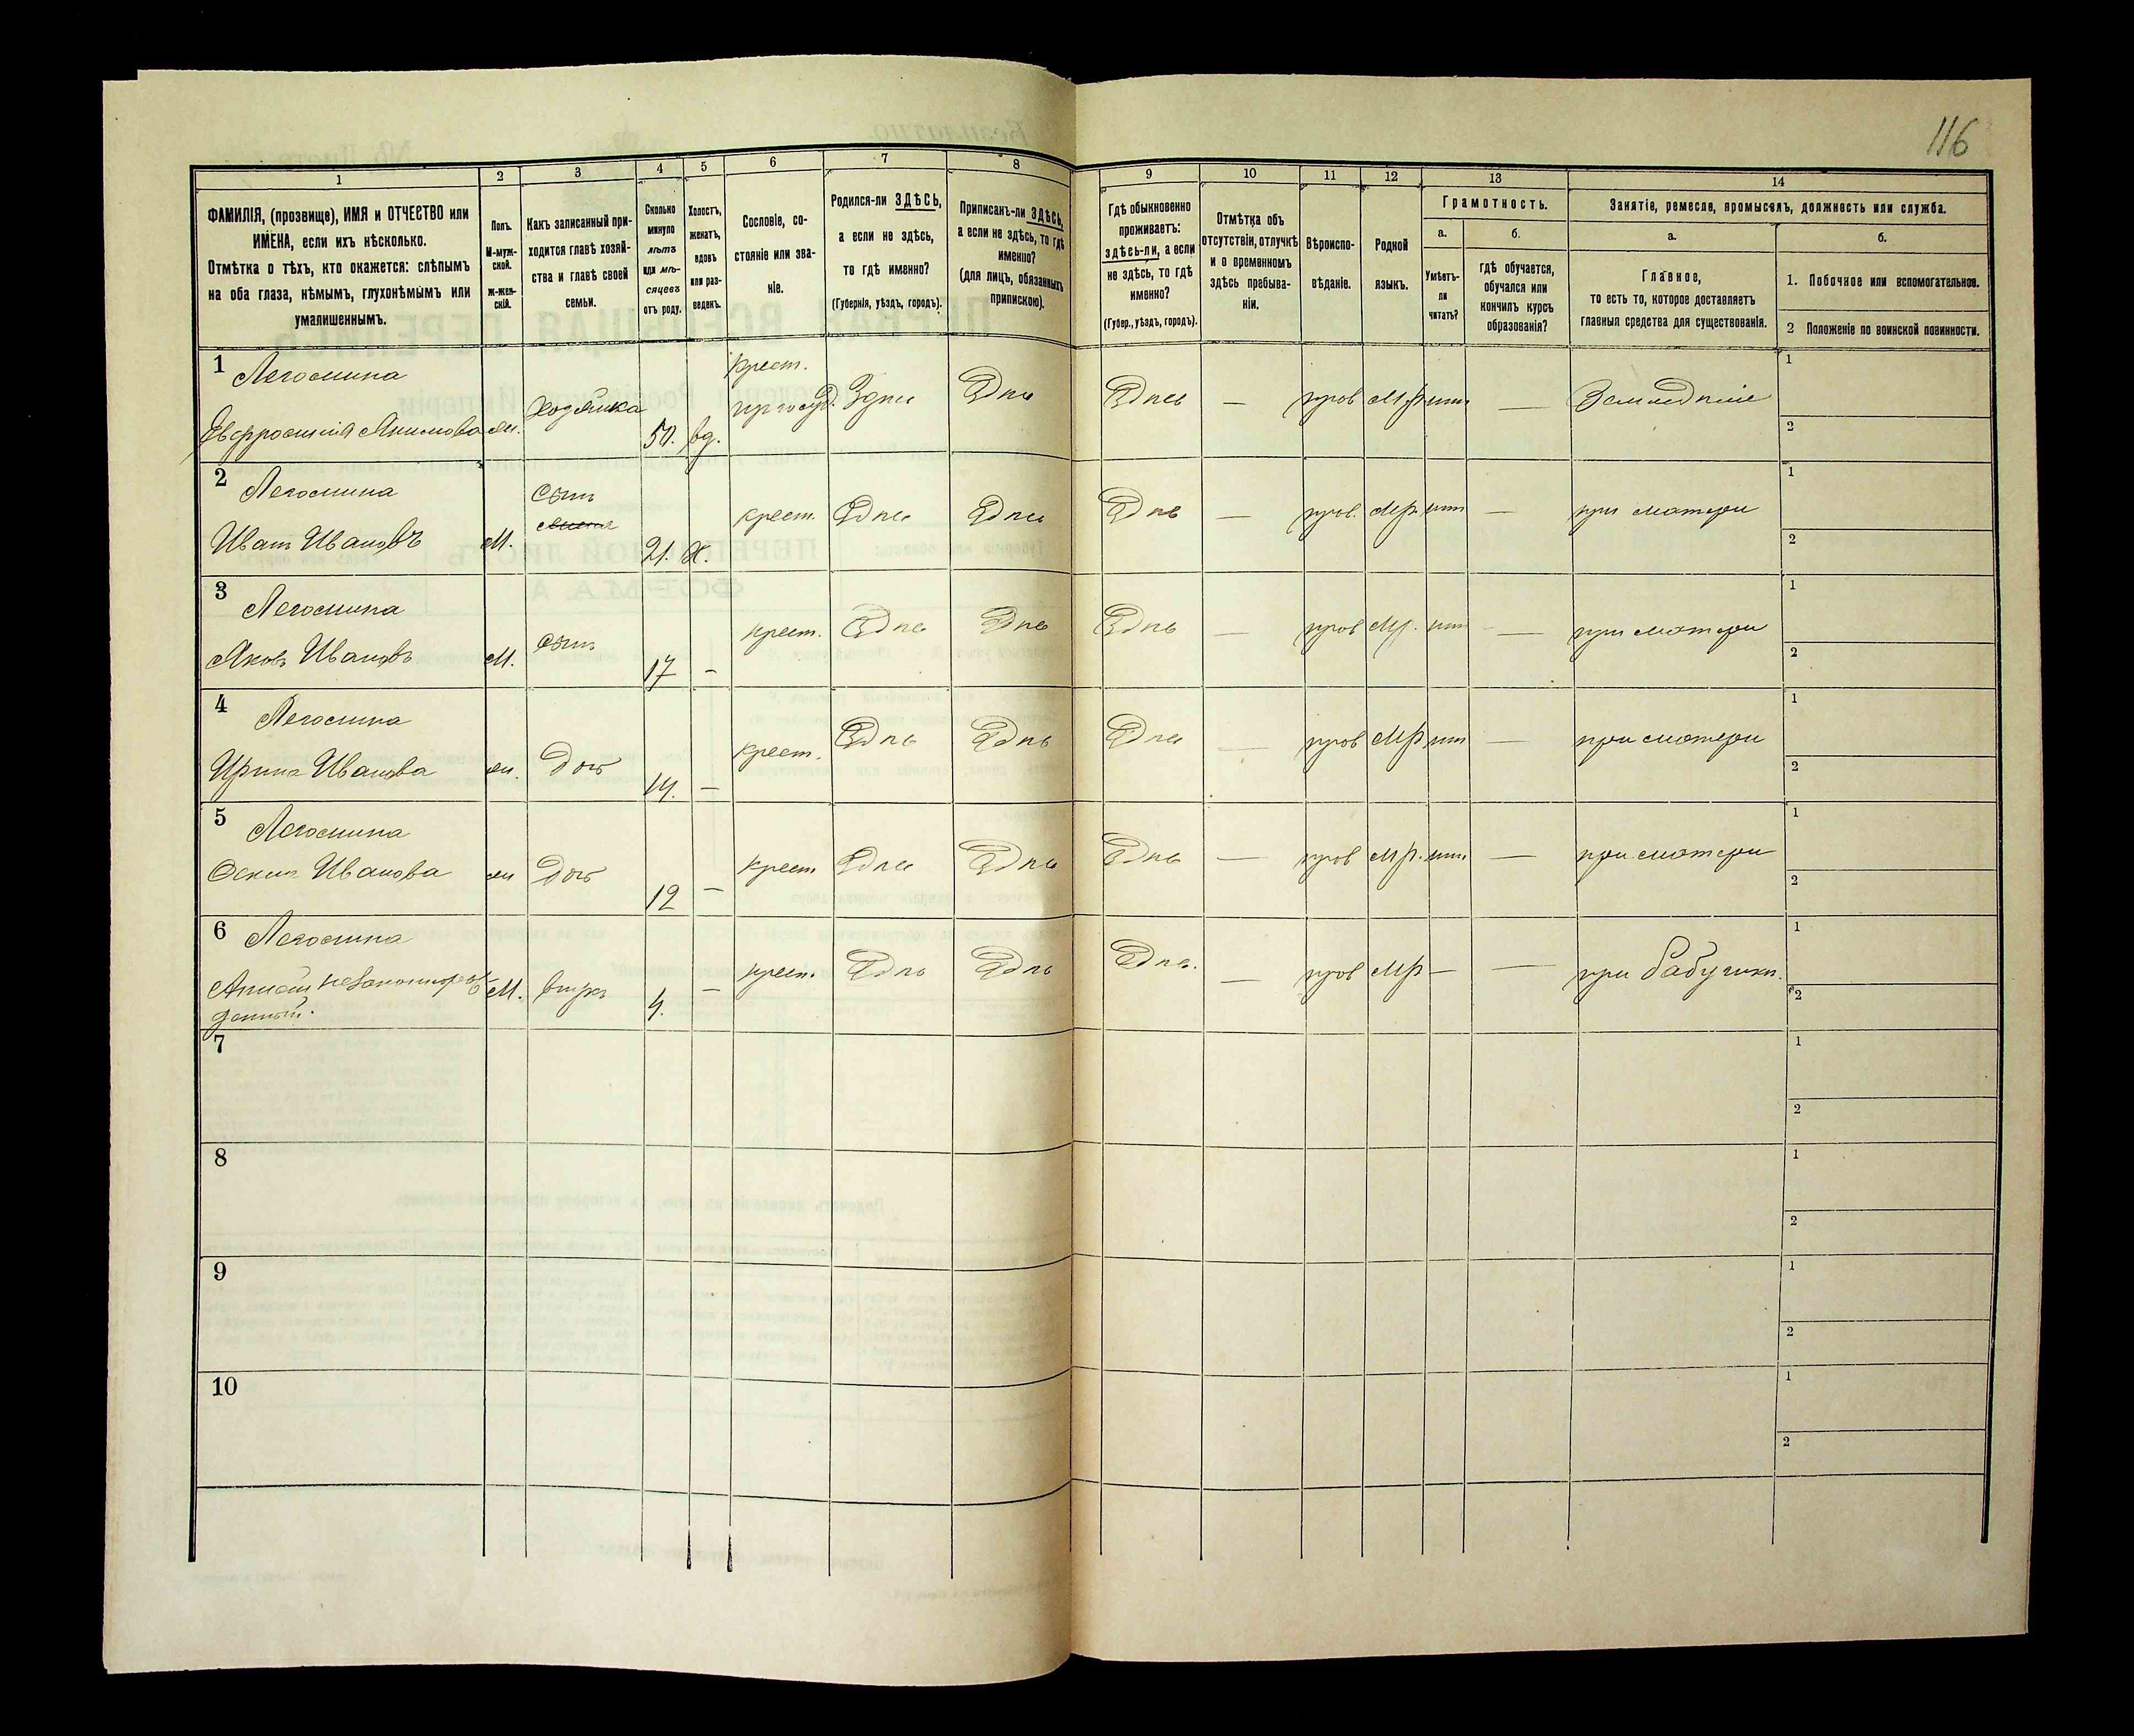 116
1
2
3
4
5
6
7
8
9
10
11
12
13
14
ФАМИЛІЯ, (прозвище), ИМЯ и ОТЧЕСТВО или
ИМЕНА, если ихъ нѣсколько.
Отмѣтка о тѣхъ, кто окажется: слѣпымъ
на оба глаза, нѣмымъ, глухонѣмымъ или
умалишеннымъ.
Полъ.
М-муж-
ской.
ж-жен-
скій.
Какъ записанный при-
ходится главѣ хозяй-
ства и главѣ своей
семьи.
Сколько
минуло
лѣтъ
или мѣ-
сяцевъ
отъ роду.
Холостъ,
женатъ,
вдовъ
или раз-
веденъ.
Сословіе, со-
стояніе или зва-
ніе.
Родился-ли ЗДѢСЬ,
а если не здѣсь,
то гдѣ именно?
(Губернія, уѣздъ, городъ).
Приписанъ-ли ЗДѢСЬ,
а если не здѣсь, то гдѣ
именно?
(для лицъ, обязанныхъ
припискою).
Гдѣ обыкновенно
проживаетъ:
здѣсь-ли, а если
не здѣсь, то гдѣ
именно?
(Губер., уѣздъ, городъ).
Отмѣтка объ
отсутствіи, отлучкѣ
и о временномъ
здѣсь пребыва-
ніи.
Вѣроиспо-
вѣданіе.
Родной
языкъ.
Грамотность.
а.
Умѣетъ-
ли
читать?
б.
гдѣ обучается,
обучался или
кончилъ курсъ
образованія?
Занятіе, ремесло, промыселъ, должность или служба.
а.
Главное,
то есть то, которое доставляетъ
главныя средства для существованія.
б.
1. Побочное или вспомогательное.
2 Положеніе по воинской повинности.
1
Легостина
Евфросинія Акимова
Хозяйка
50.
вд.
крест.
Здѣсь
Здѣсь
Здѣсь
—
прав
нѣтъ
—
Земледѣліе
1
2
2
Легостина
Иванъ Ивановъ
М.
Сынъ
21.
Х.
крест.
Здѣсь
Здѣсь
Здѣсь
—
прав.
нѣтъ
—
при матери
1
2
3
Легостина
Яковъ Ивановъ
М.
Сынъ
17
—
крест.
Здѣсь
Здѣсь
Здѣсь
—
прав
нѣтъ
—
при матери
1
2
4
Легостина
Ирина Иванова
Дочь
14.
—
крест.
Здѣсь
Здѣсь
Здѣсь
—
прав
нѣтъ
—
при матери
1
2
5
Легостина
Иванова
Дочь
12
—
крест
Здѣсь
Здѣсь
Здѣсь
—
прав
нѣтъ
—
при матери
1
2
6
Легостина
незаконнорож
денный.
М.
внукъ
4.
—
крест.
Здѣсь
Здѣсь
Здѣсь.
—
прав
—
—
при бабушки.
1
2
7
1
2
8
1
2
9
1
2
10
1
2